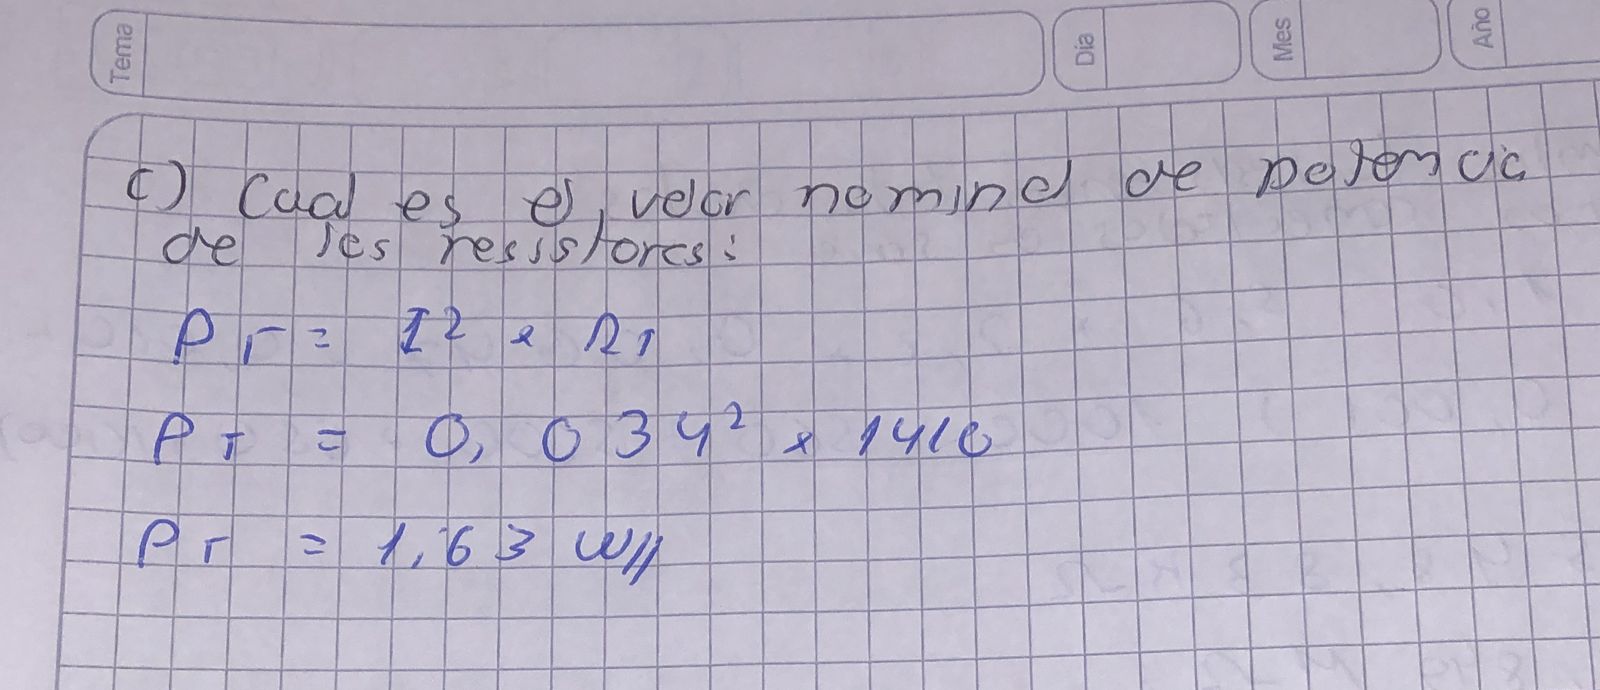 Tema Día Mes Año
c) Cual es el valor nominal de potencia
de los resistores:
Pr = I² × R1
PT = 0,034² × 1410
Pr = 1,63 W//